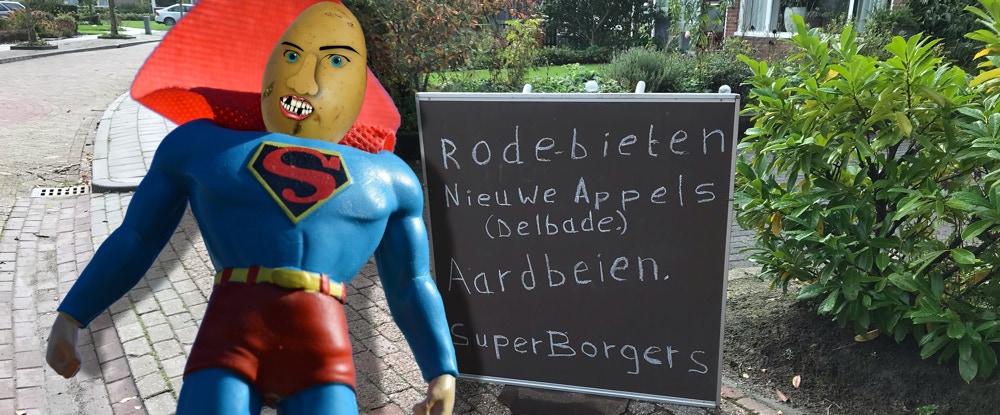 S
Rode-bieten
Nieuwe Appels
(Delbade.)
Aardbeien.
SuperBorgers